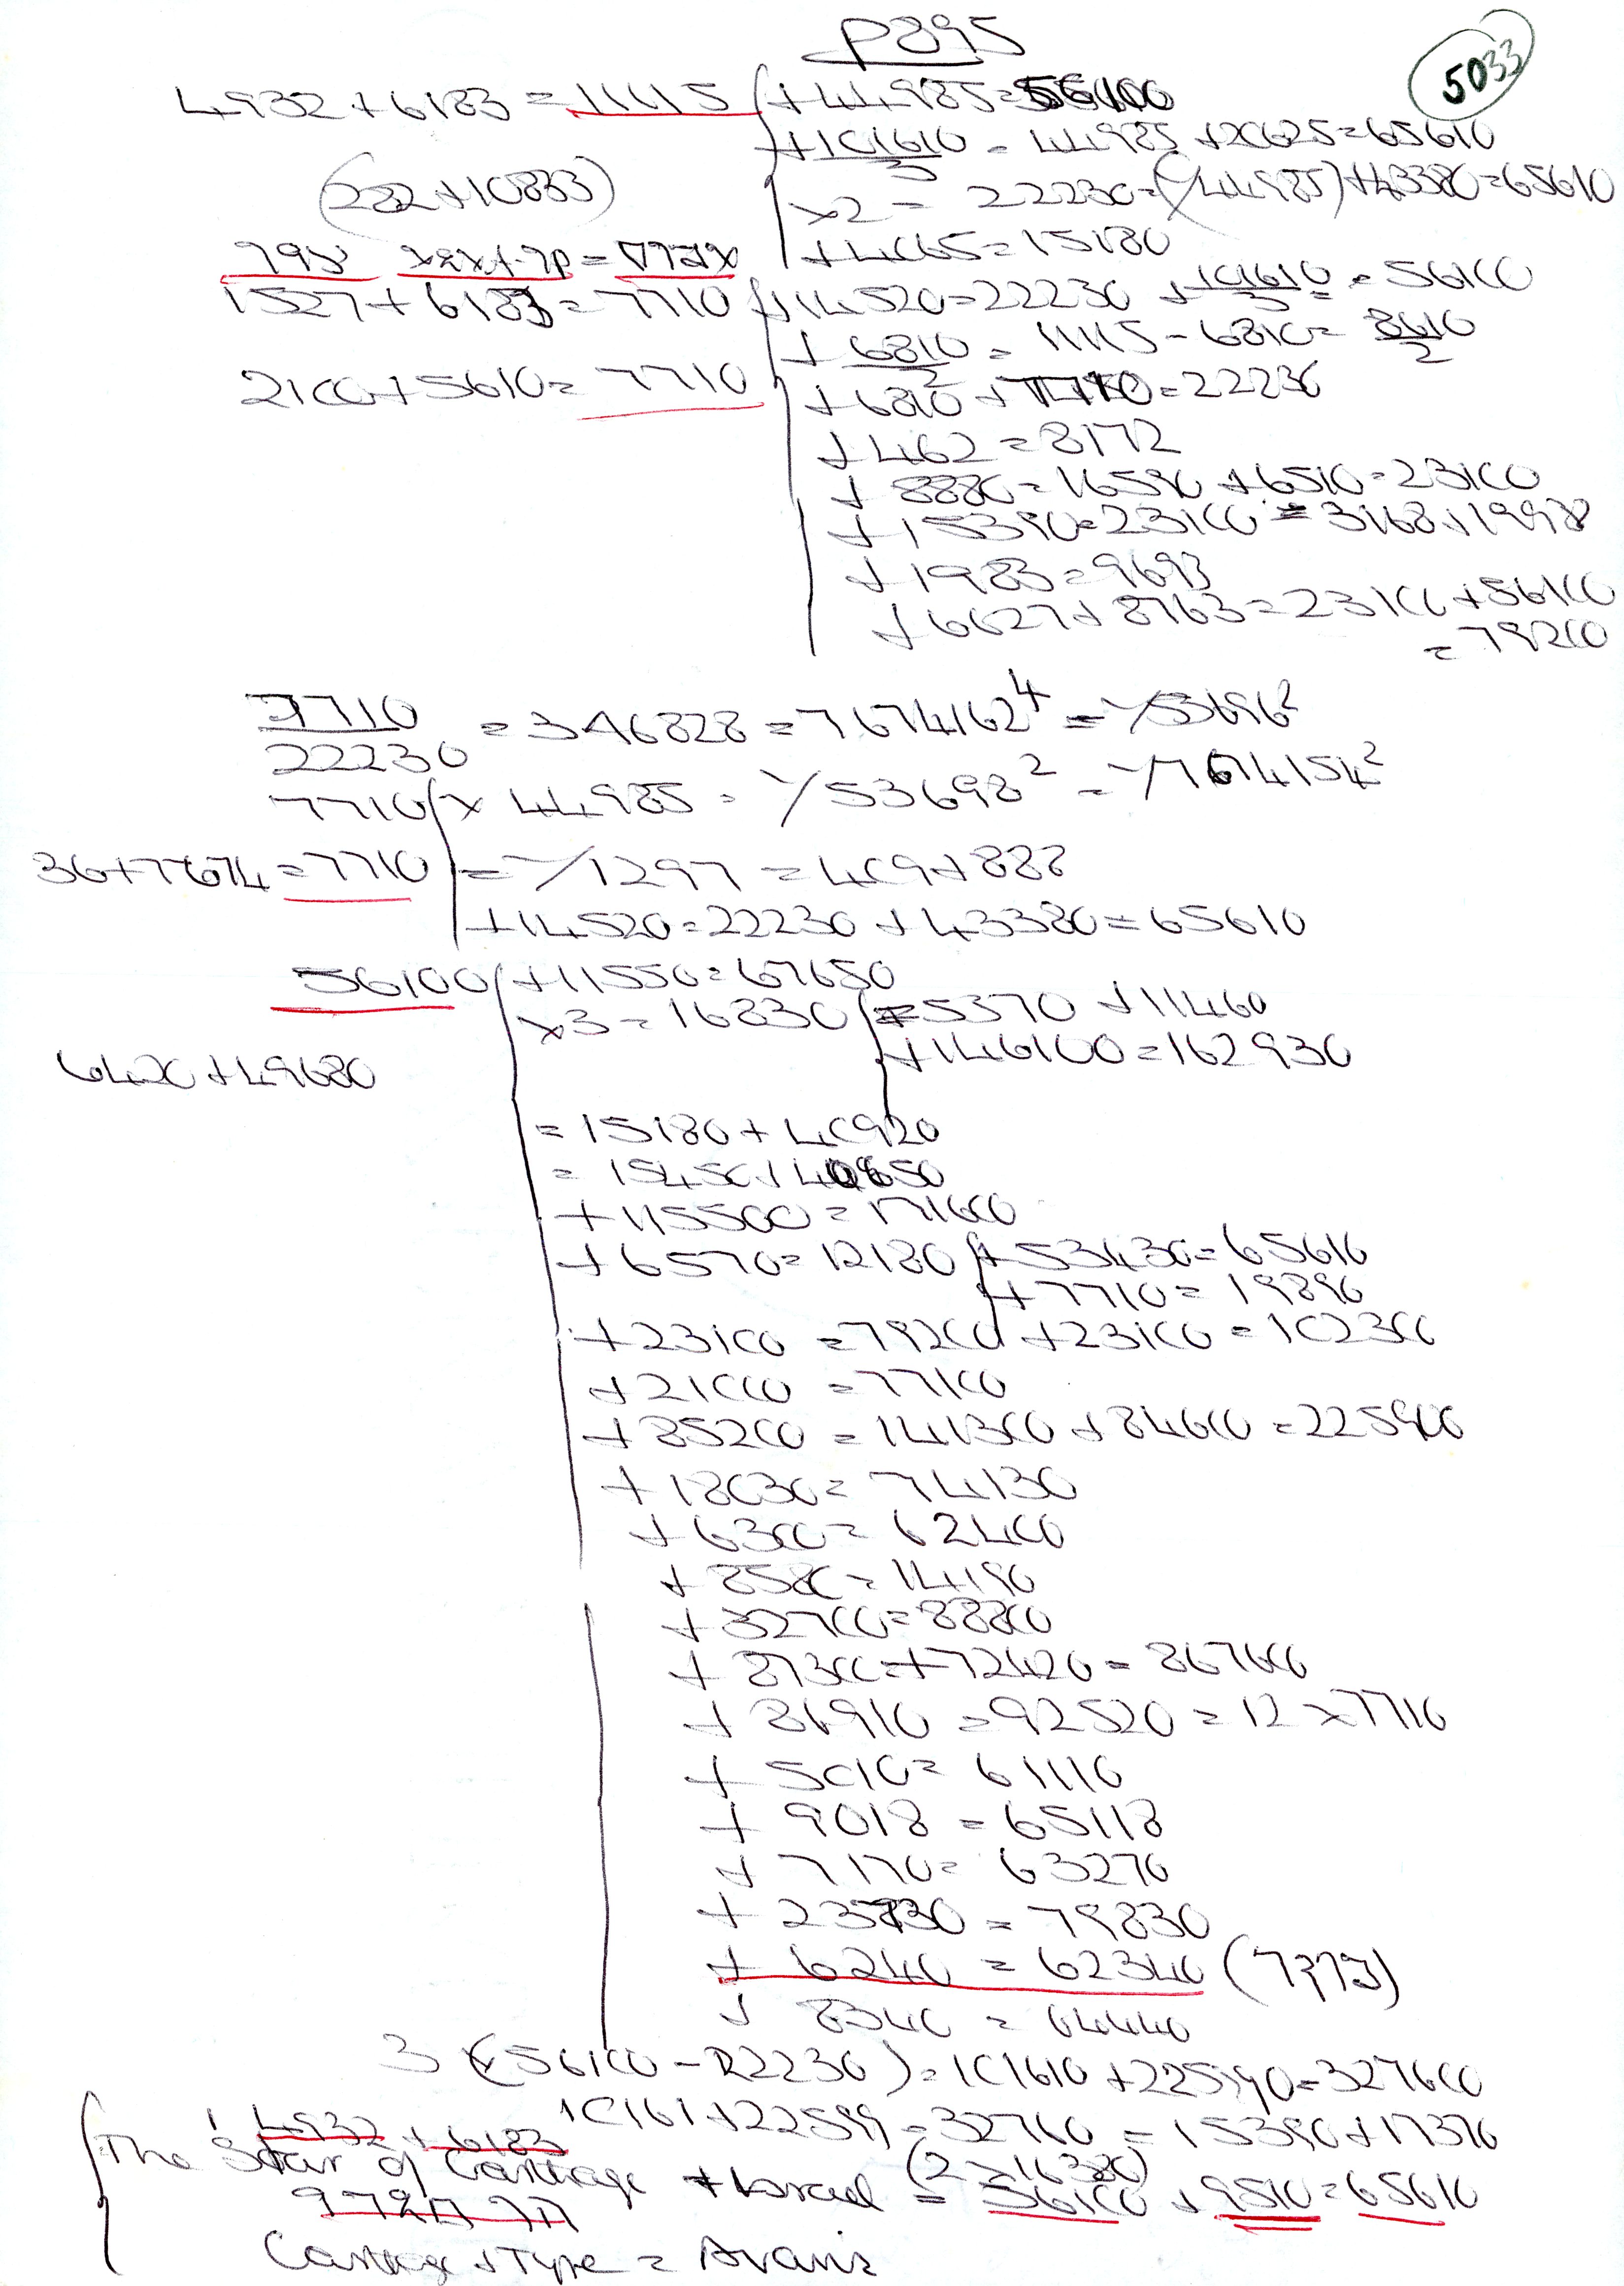 P895
5033
4932 + 6183 = 11115 + 44985 = 56100
+ 101610/3 = 44985 + 20625 = 65610
(282 + 10833)
x2 = 22230 = (44985) + 43380 = 65610
+ 4065 = 15180
1527 + 6183 = 7710 + 14520 = 22230 + 101610/3 = 56100
+ 6810/2 = 11115 - 6810 = 8610/2
2100 + 5610 = 7710
+ 6810 + 7710 = 22230
+ 462 = 8172
+ 8880 = 16590 + 6510 = 23100
+ 15390 = 23100 = 3168 + 19998
+ 1983 = 9693
+ 6627 + 8763 = 23100 + 56100
= 79200
7710/22230 = 346828 = 7674162⁴ = √53696²
7710 x 44985 = √53698² = √7674154²
36 + 7674 = 7710 = √1297 = 409 + 888
+ 14520 = 22230 + 43380 = 65610
56100 + 11550 = 67650
x3 = 16830 = 5370 + 11460
+ 146100 = 162930
6420 + 49680
= 15180 + 40920
= 15450 + 40650
+ 115500 = 171600
+ 6570 = 12180 + 53430 = 65610
+ 7710 = 19890
+ 23100 = 79200 + 23100 = 102300
+ 21000 = 77100
+ 85200 = 141300 + 84600 = 225900
+ 18030 = 74130
+ 6300 = 62400
+ 8580 = 14190
+ 32700 = 88800
+ 87300 = + 72420 = 867600
+ 86910 = 92520 = 12 x 7710
+ 5010 = 61110
+ 9018 = 65118
+ 7170 = 63270
+ 23730 = 79830
+ 6240 = 62340
+ 8340 = 64440
3 x (56100 - 22230) = 101610 + 225990 = 327600
10161 + 22599 = 32760 = 15390 + 17370
4932 + 6183
(2 x 16380)
The Star of Cartage + Israel = 56100 + 9510 = 65610
Cartage + Type = Avaris